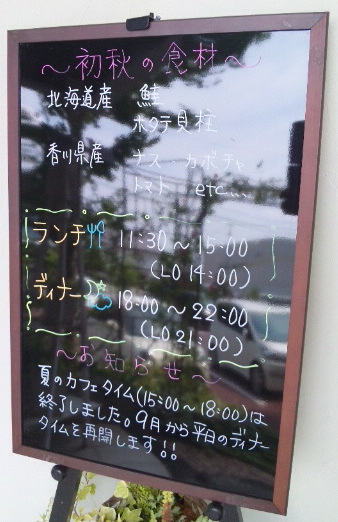 ～初秋の食材～
北海道産 鮭
ホタテ貝柱
香川県産 ナス カボチャ
トマト etc...
ランチ 11:30～15:00
(LO 14:00)
ディナー 18:00～22:00
(LO 21:00)
～お知らせ～
夏のカフェタイム(15:00～18:00)は
終了しました。9月から平日のディナー
タイムを再開します!!